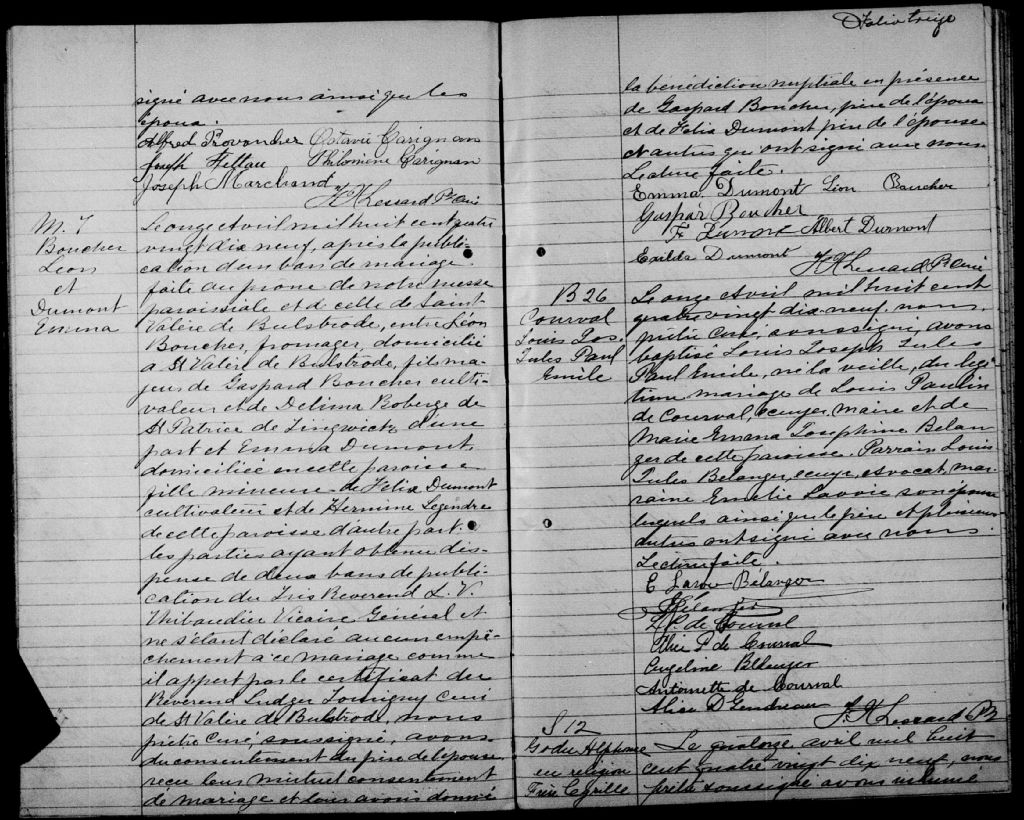 signé avec nous ainsi que les
époux.
Alfred Provancher Octavie Carignan
Joseph Hettau Philomine Carignan
Joseph Marchand
Lessard Ptre Curé
M. 7
Boucher
Leon
et
Dumont
Emma
Le onze Avril mil huit cent quatre
vingt dix neuf, après la publi-
cation d'un bans de mariage
faite au prone de notre messe
paroissiale et d celle de Saint
Valère de Bulstrode, entre Léon
Boucher, fromager, domicilié
a St Valère de Bulstrode, fils ma-
jeur de Gaspard Boucher culti-
vateur et de Delima Roberge de
St Patrice de Tingwick, d'une
part et Emma Dumont,
domiciliée en cette paroisse
fille mineure de Felix Dumont
cultivateur et de Hermine Legendre
de cette paroisse d'autre part
les parties ayant obtenu dis-
pense de deux bans de publi-
cation du Tris Reverend L. V.
Thibaudier Vicaire Général et
ne s'etant déclaré aucun empê-
chement a ce mariage comme
il appert par le certificat du
Reverend Ludger Tourigny curé
de St Valère de Bulstrode, nous
prètre Curé, soussigné, avons
du consentement du père de l'épouse
reçu leur mutuel consentement
de mariage et leur avons donné
Folio treize
la bénédiction nuptiale en présence
de Gaspard Boucher, père de l'époux
et de Felix Dumont père de l'épouse
et autres qui ont signé avec nous
Lecture faite.
Emma Dumont Léon Boucher
Gaspar Boucher
F Dumont Albert Dumont
Exilda Dumont
Lessard Ptre Curé
B 26
Courval
Louis Jos.
Jules Paul
Emile
Le onze Avril mil huit cent
quatre vingt dix neuf, nous
prètre Curé, soussigné, avons
baptisé Louis Joseph Jules
Paul Emile, né la veille, du légi-
time mariage de Louis Paulin
de Courval, ecuyer, maire et de
Marie Emma Josephine Belan
ger de cette paroisse. Parrain Louis
Jules Belanger, ecuyer, Avocat, mar
raine Emelie Lavoie son épouse
lesquels ainsi que le père et plusieurs
autres ont signé avec nous
Lecture faite.
E Bélanger
Bélanger
P. de Courval
Alice P de Courval
Angeline Bélanger
Antoinette de Courval
Alice D Gendreau
Lessard Ptre
S 12
Godin Alphonse
en religion
Frère Cyrille
Le quatorze avril mil huit
cent quatre vingt dix neuf, nous
prètre soussigné avons inhumé